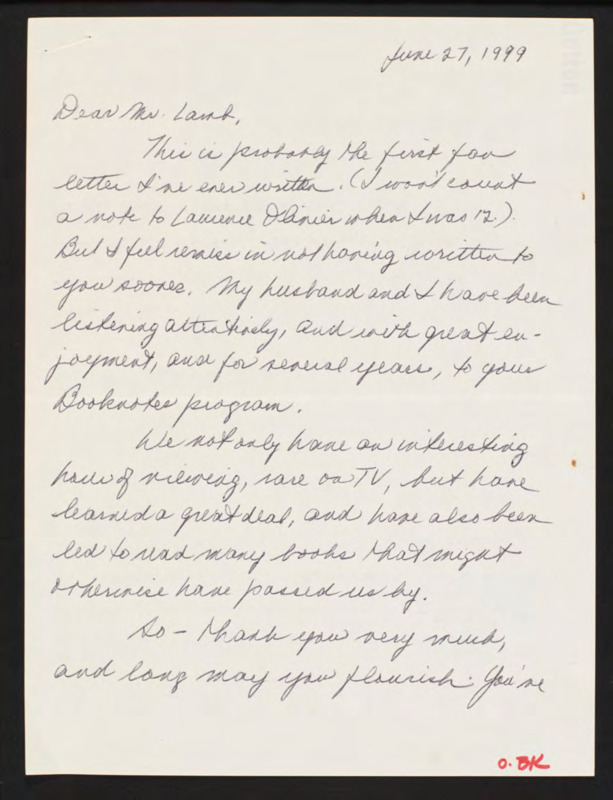 June 27, 1999
Dear Mr. Lamb,
This is probably the first fan
letter I've ever written. (I won't count
a note to Laurence Olivier when I was 12.).
But I feel remiss in not having written to
you sooner. My husband and I have been
listening attentively, and with great en-
joyment, and for several years, to your
Booknotes program.
We not only have an interesting
hour of viewing, rare on TV, but have
learned a great deal, and have also been
led to read many books that might
otherwise have passed us by.
So - thank you very much,
and long may you flourish. You've
O.BK